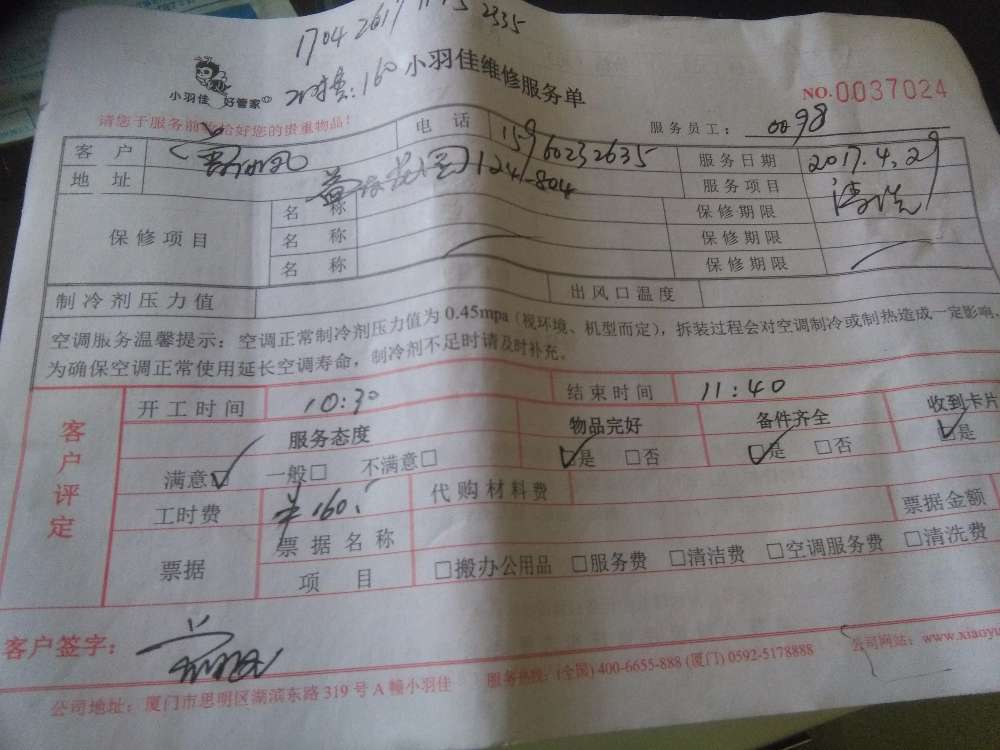 1704 2617 1115 2335
工时费：160
小羽佳维修服务单
小羽佳 好管家
NO.0037024
请您于服务前收恰好您的贵重物品！
服务员工： 0098
客户 电话 15960232635 服务日期 2017.4.29
地址 124-804 服务项目 清洗
保修项目 名称 保修期限
名称 保修期限
名称 保修期限
制冷剂压力值 出风口温度
空调服务温馨提示：空调正常制冷剂压力值为 0.45mpa（视环境、机型而定），拆装过程会对空调制冷或制热造成一定影响、
为确保空调正常使用延长空调寿命，制冷剂不足时请及时补充。
客户评定
开工时间 10:30 结束时间 11:40
服务态度 物品完好 备件齐全 收到卡片
满意☑ 一般□ 不满意□ ☑是 □否 ☑是 □否 ☑是
工时费 ¥160. 代购材料费
票据 票据名称 票据金额
项目 □搬办公用品 □服务费 □清洁费 □空调服务费 □清洗费
客户签字：
公司地址：厦门市思明区湖滨东路 319 号 A 幢小羽佳 服务热线：(全国) 400-6655-888 (厦门) 0592-5178888 公司网站：www.xiaoyu